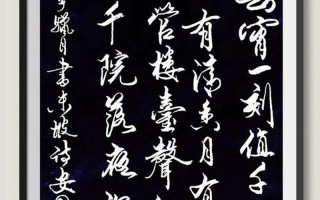 宵一刻值千
有清香月有
管樓臺聲
千院落夜
臘月書東坡詩安